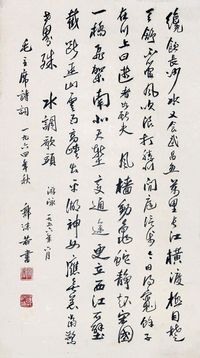 纔飲長沙水又食武昌魚萬里長江橫渡極目楚
天舒不管風吹浪打勝似閒庭信步今日得寬餘子
在川上曰逝者如斯夫 風檣動龜蛇靜起宏圖
一橋飛架南北天塹變通途更立西江石壁
截斷巫山雲雨高峽出平湖神女應無恙當驚
世界殊 水調歌頭 游泳 一九五六年六月
毛主席詩詞 一九六四年秋